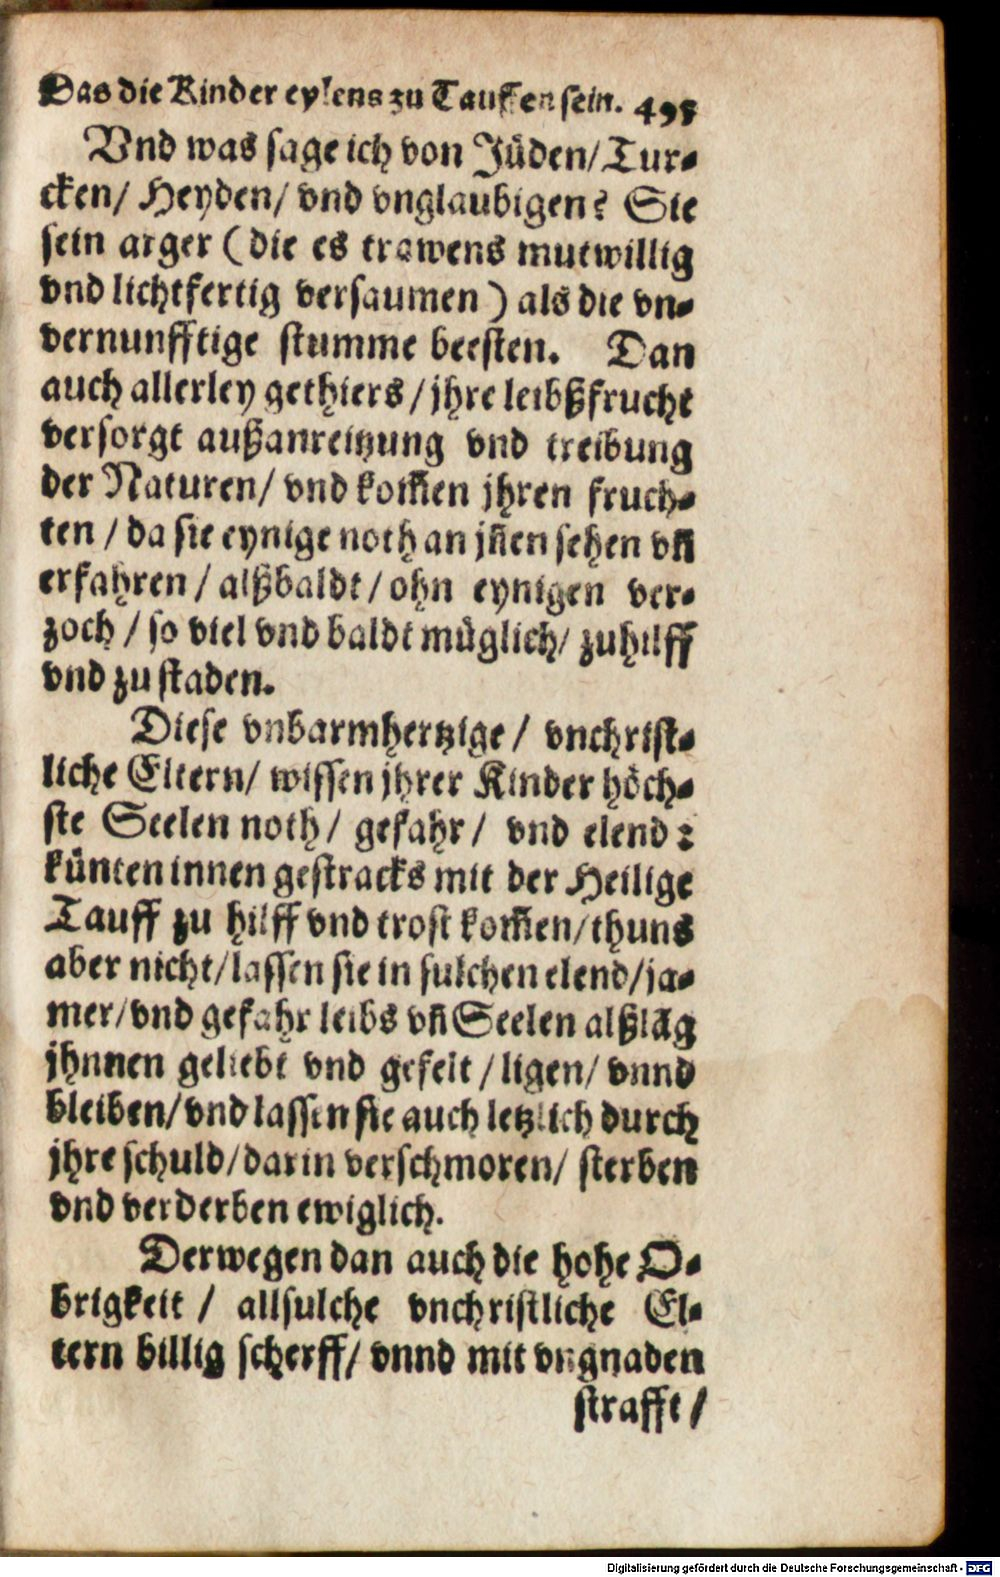 Das die Kinder eylens zu Tauffen sein. 495
Vnd was sage ich von Jüden/Tur-
cken/ Heyden/ vnd vnglaubigen? Sie
sein arger (die es trawens mutwillig
vnd lichtfertig versaumen) als die vn-
vernunfftige stumme beesten. Dan
auch allerley gethiers/jhre leibßfrucht
versorgt außanreitzung vnd treibung
der Naturen/ vnd kom̄en jhren fruch-
ten/da sie eynige noth an jñen sehen vñ
erfahren/alßbaldt/ohn eynigen ver-
zoch/so viel vnd baldt müglich/ zuhilff
vnd zu staden.
Diese vnbarmhertzige/ vnchrist-
liche Eltern/ wissen jhrer Kinder höch-
ste Seelen noth/ gefahr/ vnd elend:
künten innen gestracks mit der Heilige
Tauff zu hilff vnd trost kom̄en/thuns
aber nicht/lassen sie in sulchen elend/ja-
mer/vnd gefahr leibs vñ Seelen alßlãg
jhnnen geliebt vnd gefelt/ligen/ vnnd
bleiben/vnd lassen sie auch letzlich durch
jhre schuld/darin verschmoren/ sterben
vnd verderben ewiglich.
Derwegen dan auch die hohe O-
brigkeit/ allsulche vnchristliche El-
tern billig scherff/ vnnd mit vngnaden
strafft/
Digitalisierung gefördert durch die Deutsche Forschungsgemeinschaft - DFG